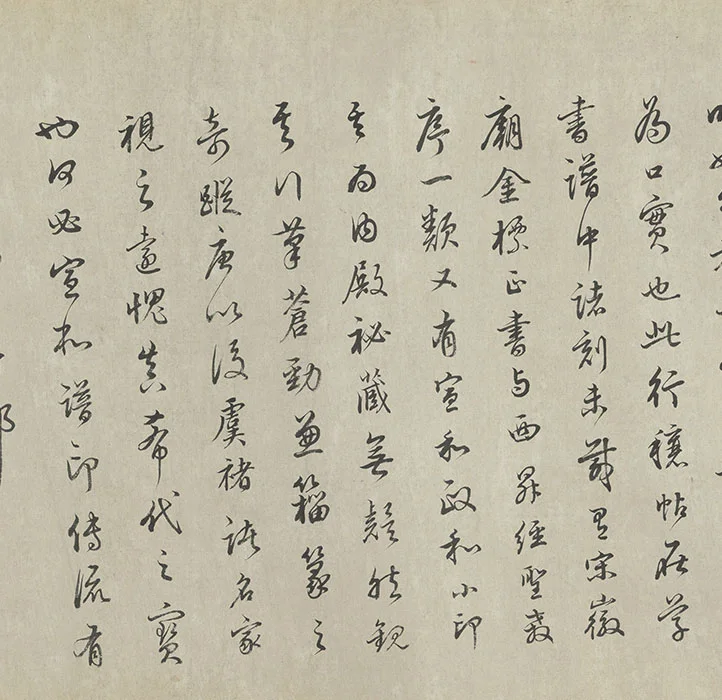 為口實也此行穰帖在学
書譜中諸刻未載有宋徽
廟金標正書与西昇經聖教
序一類又有宣和政和小印
其為內殿祕藏無疑然觀
其行筆蒼勁兼籀篆之
奇蹤唐以後虞褚諸名家
視之遠愧真希代之寶
也何必宣和譜印傳流有